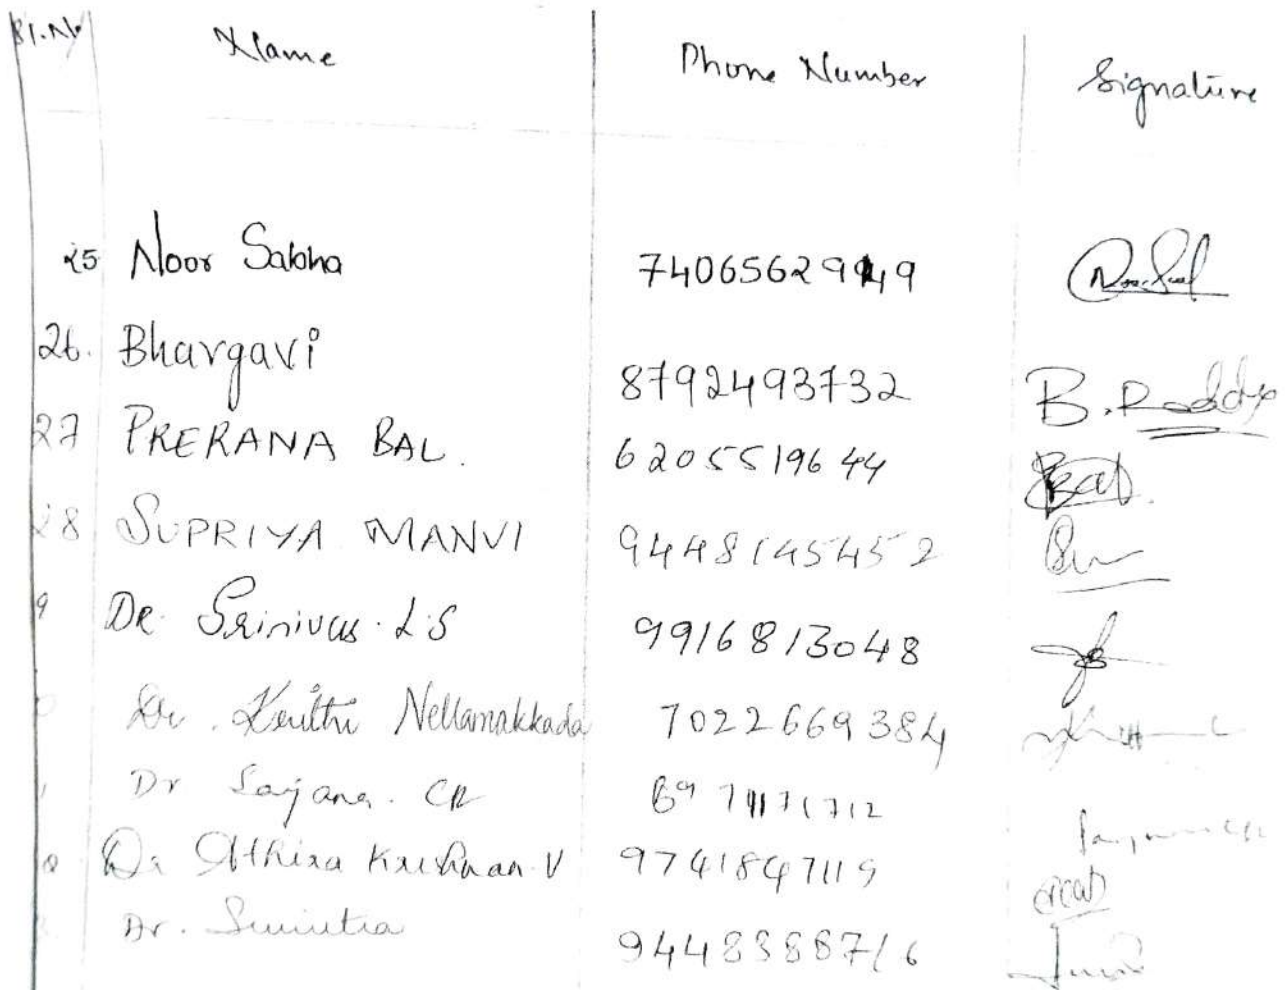 Sl.No Name Phone Number Signature
25 Noor Sabha 7406562949
26. Bhargavi 8792493732 B. Reddy
27 PRERANA BAL. 6205519644 Bal.
28 SUPRIYA MANVI 9448145452
9 Dr. Srinivas. L S 9916813048
Dr. Keerthi Nellamakkada 7022669384
Dr Sanjana. CR
Dr Athira Krishnan. V 9741847119
Dr. Sumitra 9448388716